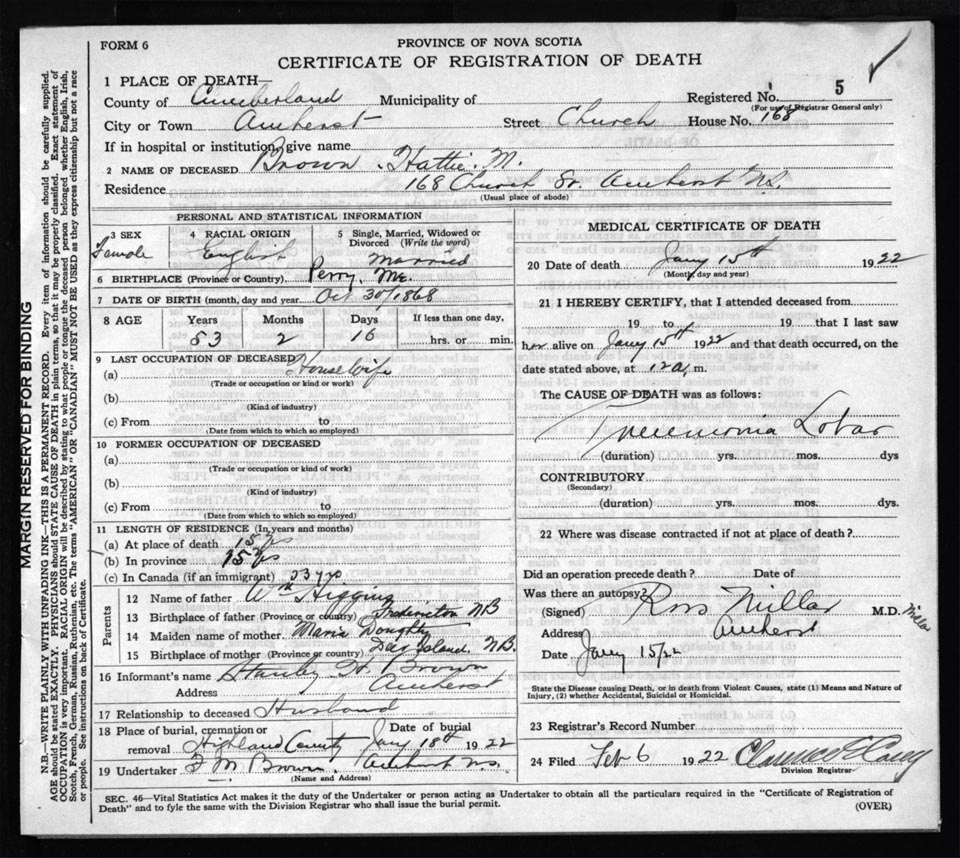 FORM 6
PROVINCE OF NOVA SCOTIA
CERTIFICATE OF REGISTRATION OF DEATH
1 PLACE OF DEATH—
County of Cumberland Municipality of Registered No. 5
(For use of Registrar General only)
City or Town Amherst Street Church House No. 168
If in hospital or institution, give name
2 NAME OF DECEASED Brown Hattie M.
Residence 168 Church St. Amherst N.S.
(Usual place of abode)
PERSONAL AND STATISTICAL INFORMATION
3 SEX 4 RACIAL ORIGIN 5 Single, Married, Widowed or Divorced (Write the word)
Female English Married
6 BIRTHPLACE (Province or Country) Perry, Me.
7 DATE OF BIRTH (month, day and year Oct 30/1868
8 AGE Years Months Days If less than one day,
53 2 16 hrs. or min.
9 LAST OCCUPATION OF DECEASED Housewife
(a)
(Trade or occupation or kind or work)
(b)
(Kind of industry)
(c) From to
(Date from which to which so employed)
10 FORMER OCCUPATION OF DECEASED
(a)
(Trade or occupation or kind of work)
(b)
(Kind of industry)
(c) From to
(Date from which to which so employed)
11 LENGTH OF RESIDENCE (In years and months)
(a) At place of death 15 yrs
(b) In province 15 yrs
(c) In Canada (if an immigrant)
Parents
12 Name of father Wm Higgins
13 Birthplace of father (Province or country) Fredericton NB
14 Maiden name of mother Maria Doughty
15 Birthplace of mother (Province or country) Island, N.B.
16 Informant's name Stanley H. Brown
Address Amherst
17 Relationship to deceased Husband
18 Place of burial, cremation or removal Highland Date of burial Jany 18th 1922
19 Undertaker F M. Brown Amherst N.S.
(Name and Address)
MEDICAL CERTIFICATE OF DEATH
20 Date of death Jany 15th 1922
(Month, day and year)
21 I HEREBY CERTIFY, that I attended deceased from
19 to 19 that I last saw
her alive on Jany 15th 1922 and that death occurred, on the
date stated above, at m.
The CAUSE OF DEATH was as follows:
Pneumonia Lobar
(duration) yrs. mos. dys
CONTRIBUTORY
(Secondary)
(duration) yrs. mos. dys.
22 Where was disease contracted if not at place of death?
Did an operation precede death? Date of
Was there an autopsy?
(Signed) Ross Millar M.D. Millar
Address Amherst
Date Jany 15/22
State the Disease causing Death, or in death from Violent Causes, state (1) Means and Nature of
Injury, (2) whether Accidental, Suicidal or Homicidal.
23 Registrar's Record Number
24 Filed Feb 6 1922
Division Registrar
SEC. 46—Vital Statistics Act makes it the duty of the Undertaker or person acting as Undertaker to obtain all the particulars required in the "Certificate of Registration of
Death" and to fyle the same with the Division Registrar who shall issue the burial permit. (OVER)
MARGIN RESERVED FOR BINDING
N.B.—WRITE PLAINLY WITH UNFADING INK—THIS IS A PERMANENT RECORD. Every item of information should be carefully supplied.
AGE should be stated EXACTLY. PHYSICIANS should STATE CAUSE OF DEATH in plain terms, so that it may be properly classified. Exact statement of
OCCUPATION is very important. RACIAL ORIGIN will be described by stating to what people or tongue the deceased person belonged whether English, Irish,
Scotch, French, German, Russian, Ruthenian, etc. The terms "AMERICAN" OR "CANADIAN" MUST NOT BE USED as they express citizenship but not a race
or people. See instructions on back of Certificate.